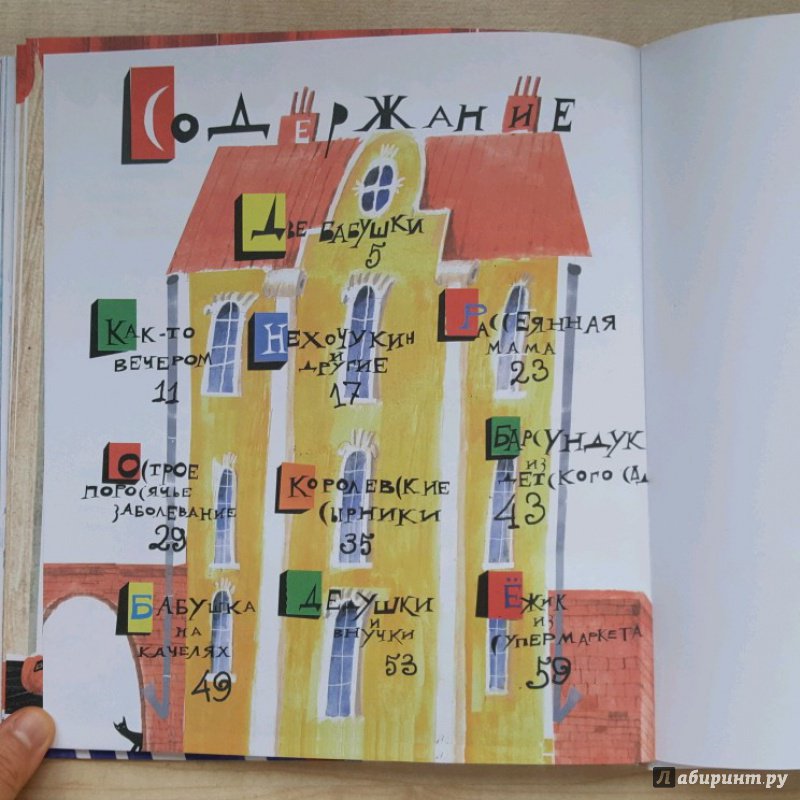 СОДЕРЖАНИЕ
ДВЕ БАБУШКИ
5
КАК-ТО
ВЕЧЕРОМ
11
НЕХОЧУКИН
И
ДРУГИЕ
17
РАССЕЯННАЯ
МАМА
23
ОСТРОЕ
ПОРОСЯЧЬЕ
ЗАБОЛЕВАНИЕ
29
КОРОЛЕВСКИЕ
СЫРНИКИ
35
БАРСУНДУК
ИЗ
ДЕТСКОГО САД
43
БАБУШКА
НА
КАЧЕЛЯХ
49
ДЕДУШКИ
И
ВНУЧКИ
53
ЁЖИК
ИЗ
СУПЕРМАРКЕТА
59
Лабиринт.ру